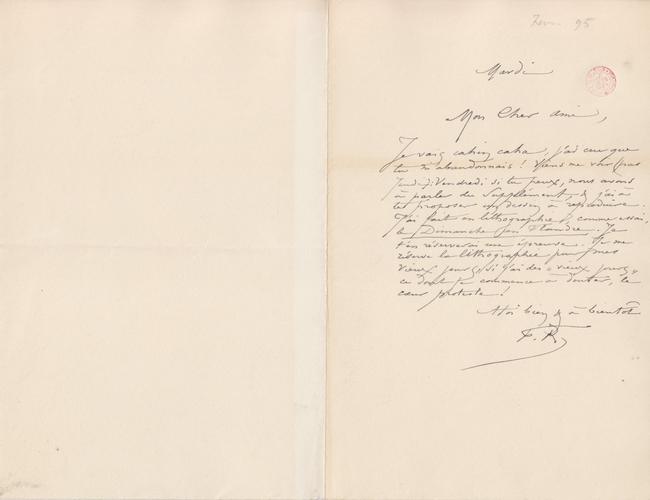 95
Mardi
Mon Cher ami,
Je vais cahin caha, j'ai cru que
tu m'abandonnais ! Viens me voir (pas
Jeudi) Vendredi si tu peux, nous avons
à parler du Supplément, & j'ai à
te proposer un dessin à reproduire.
J'ai fait en lithographie, comme essai,
le Dimanche en Flandre. Je
t'en réserverai une épreuve. Je me
réserve la lithographie pour mes
vieux jours, si j'ai des « vieux jours »
ce dont je commence à douter, le
cœur proteste !
bien & à bientôt
F. R.